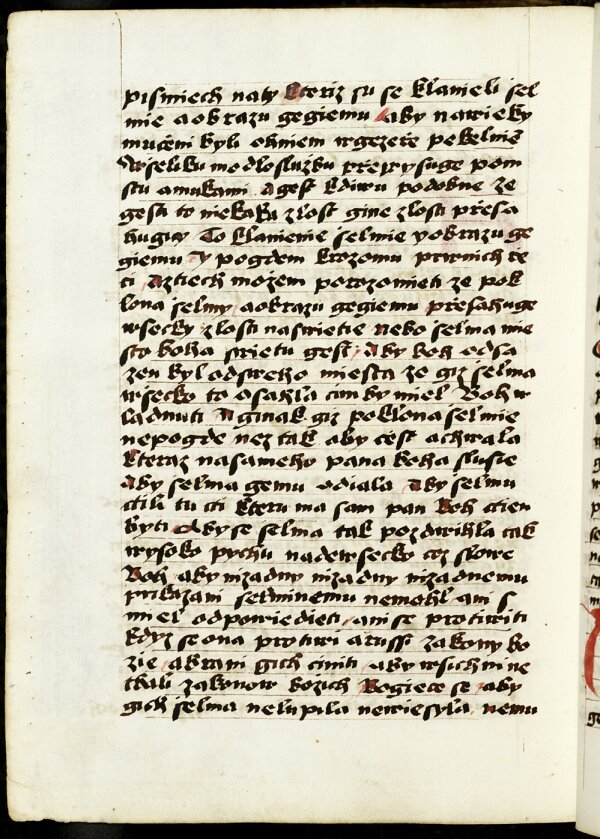 pismiech naty kteriz su se klanieli sel
mie aobrazu gegiemu aby nawieky
muceni byli ohniem wgezerze pekelnie
Wseliku modlosluzbu przewysuge pom
stu amukami Agest kdiwu podobne ze
gesti to niekaka zlost gine zlosti przesa
hugicy To klanienie selmie yobrazu ge
giemu y pogdem krozomu prwnich rze
ci aztiech mozem porozomieti ze pok
lona selmy aobrazu gegiemu przesahuge
wsecky zlosti naswietie nebo selma mie
sto boha swietu gest Aby boh odsa
zen byl odsweho miesta ze giz selma
wsecko to osahla cim by miel Boh w
ladnuti Aginak giz poklona selmie
nepogde nez tak aby cest achwala
kteraz nasameho pana boha slusie
aby selma gemu odiala aby selmu
ctili tu cti kteru ma sam pan Boh ctien
byti Aby se selma tak pozdwihla tak
wysoko pychu nadewsecko coz slowe
Boh aby nizadny nizadny nizadnemu
prikazani selminemu nemohl ani s
miel odpowiedieti ani se protiwiti
kdyz se ona protiwi arussi zakony bo
zie abrani gich ciniti aby wsichni ne
chali zakonow bozich Bogiece se aby
gich selma nelupila newiesyla nemu